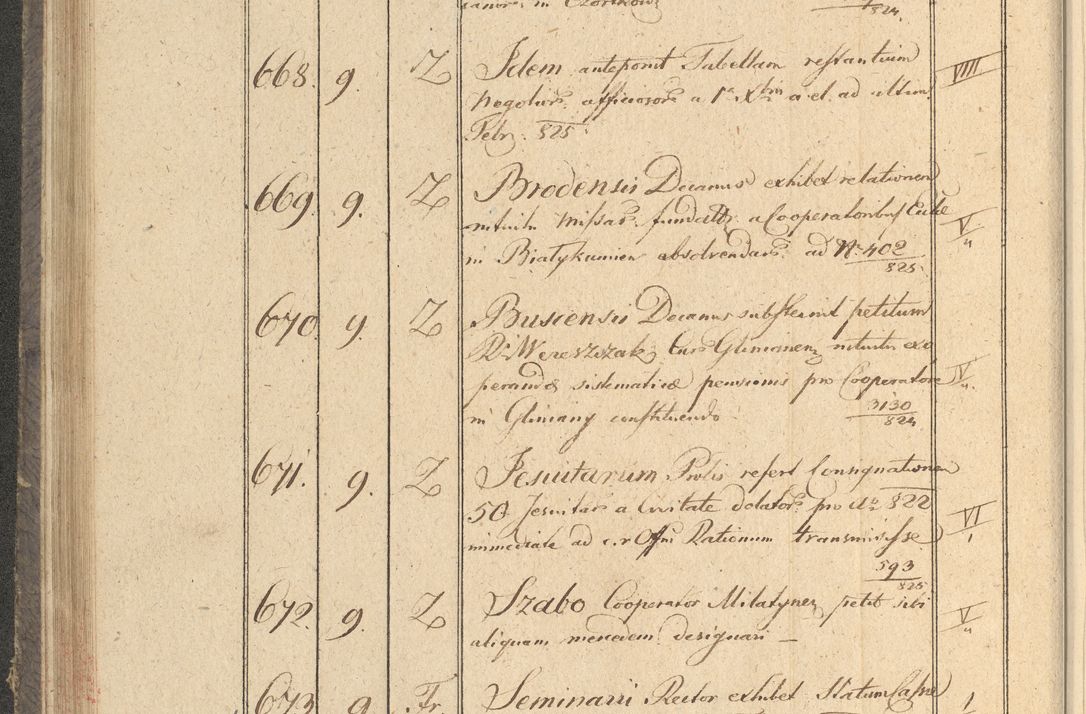 in Czortkow
824.
668. 9. Z Idem anteponit Tabellam restantium VIII
Negotior. officiosor. a 1a Xbris a. et. ad ultim.
Febr. 825.
669. 9. Z Brodensis Decanus exhibet relationem
intuitu Missar. fundatr. a Cooperatoribus V
in Białykamien absolvendar. ad Nr. 402
825.
670. 9. Z Buscensis Decanus substernit petitum
R. Wereszczak, Cur. Glinianen, intuitu exo
perandæ sistematicæ pensionis pro Cooperatore IV
in Gliniany constituendo 3130
824
671. 9. Z Jesuitarum Prolis refert Consignationem
50 Jesuitar. a Civitate dolator. pro Ao 822
immediate ad c. r. Offm Rationum transmisisse VI
593
825
672. 9. Z Szabo Cooperator Milatynen, petit sibi V
aliquam mercedem designari —
673 9. Fr. Seminarii Rector exhibet Statum Cassæ